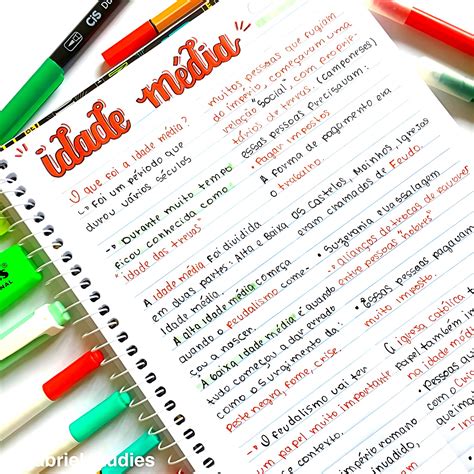 idade média
O que foi a idade média?
-> Foi um período que
durou vários séculos
-> Durante muito tempo
ficou conhecida como
"idade das trevas"
A idade média foi dividida
em duas partes: Alta e Baixa
Idade média.
A alta idade média começa
quando o feudalismo come-
çou a nascer.
A baixa idade média é quando
tudo começou a dar errado
como o surgimento da:
Peste negra, fome, crise.
-> O feudalismo vai ter
um papel muito importante
contexto.
império romano
muitos pessoas que fugiam
do império, começavam uma
relação "Social", com proprie-
tários de terras. (camponeses)
essas pessoas precisavam:
• Pagar impostos
A forma de pagamento era
o trabalho.
Os Castelos, Moinhos, Igrejas
eram chamados de Feudo.
• Suzerania e vassalagem
-> Alianças de trocas de favores
entre pessoas "nobres"
• Essas pessoas pagavam
muito imposto
A igreja católica
Papel também im
na idade média
• Pessoas
com o
queima
CIS